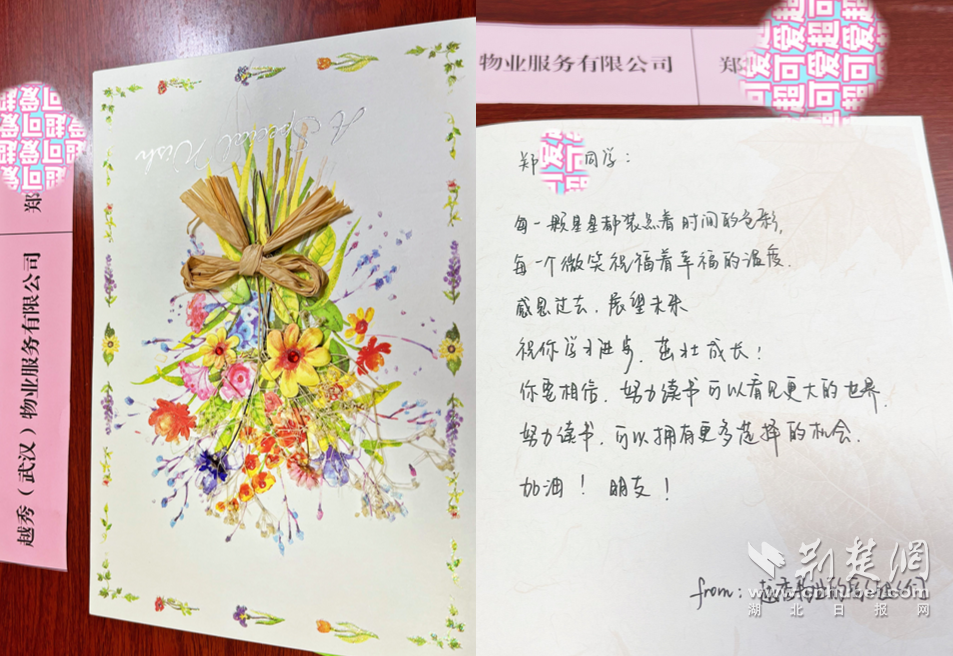 A Special Wish
郑
越秀（武汉）物业服务有限公司
物业服务有限公司
郑
超可爱
郑 同学：
每一颗星星都装点着时间的色彩，
每一个微笑祝福着幸福的温度.
感恩过去，展望未来
祝你学习进步，茁壮成长！
你要相信，努力读书可以看见更大的世界.
努力读书，可以拥有更多选择的机会.
加油！朋友！
from：越秀
荆楚網
湖北日报网